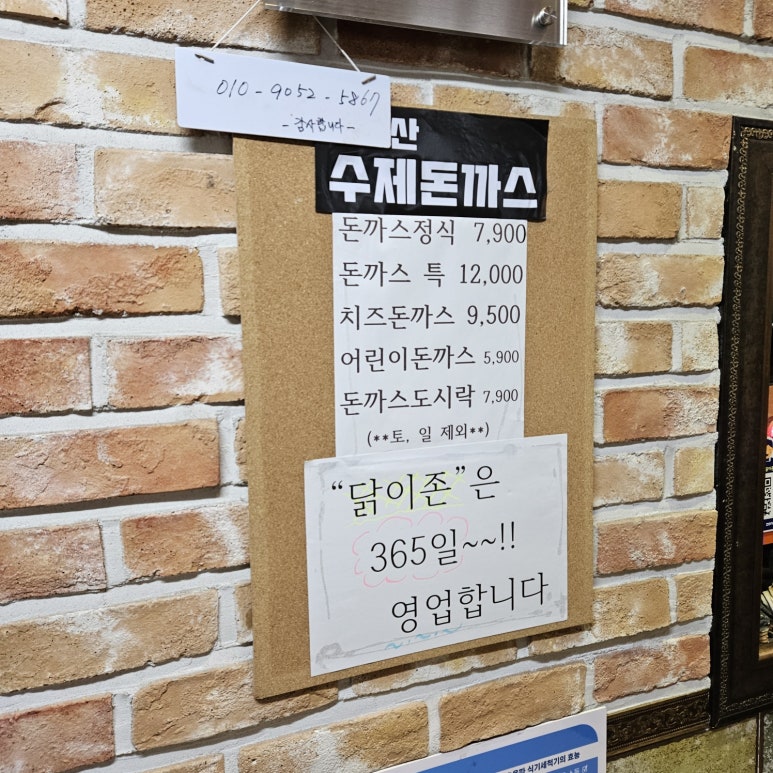 010-9052-5867
-감사합니다-
산
수제돈까스
돈까스정식 7,900
돈까스 특 12,000
치즈돈까스 9,500
어린이돈까스 5,900
돈까스도시락 7,900
(**토, 일 제외**)
“닭이존”은
365일~~!!
영업합니다
식기세척기의 효능